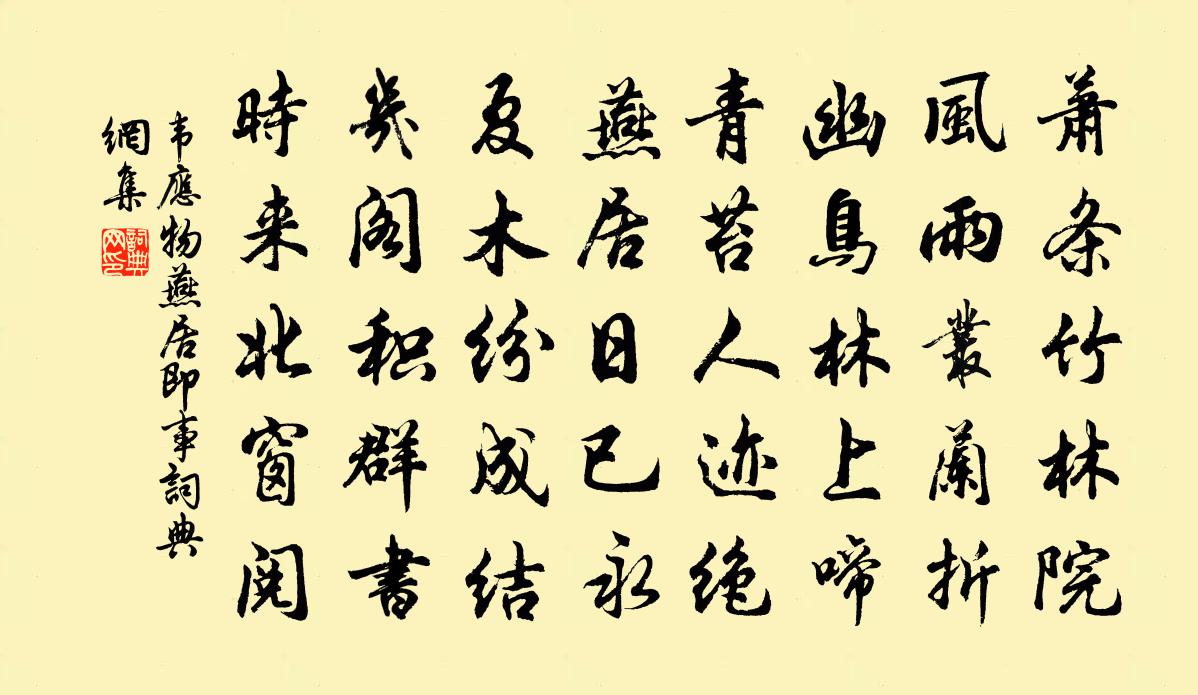 萧条竹林院
風雨叢蘭折
幽鳥林上啼
青苔人迹绝
燕居日已永
夏木纷成结
几阁积群書
時来北窗閱
韦應物燕居即事詞典
網集
詞典网印